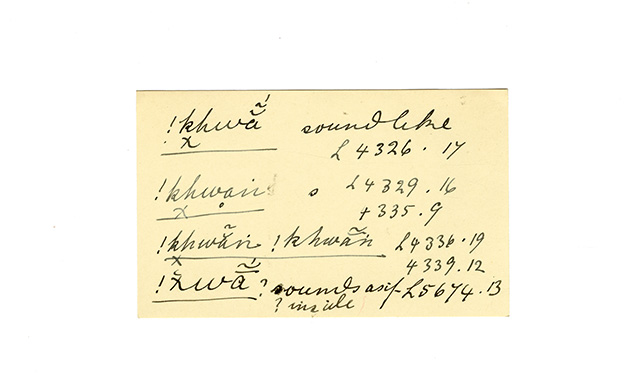 !khwã́ sound like
L 4326 . 17
!khwan s L 4329 . 16
+ 335 . 9
!khwãn !khwãn L 4336 . 19
4339 . 12
!χwã́ ? sounds as if L 5674 . 13
? inside